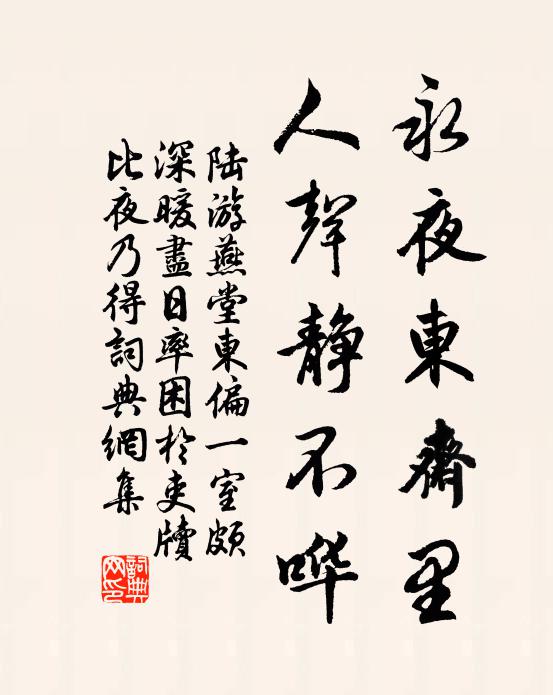 永夜東齋里
人聲靜不哗
陆游燕堂東偏一室頗
深暖盡日率困於吏牘
比夜乃得詞典網集
詞典
网印